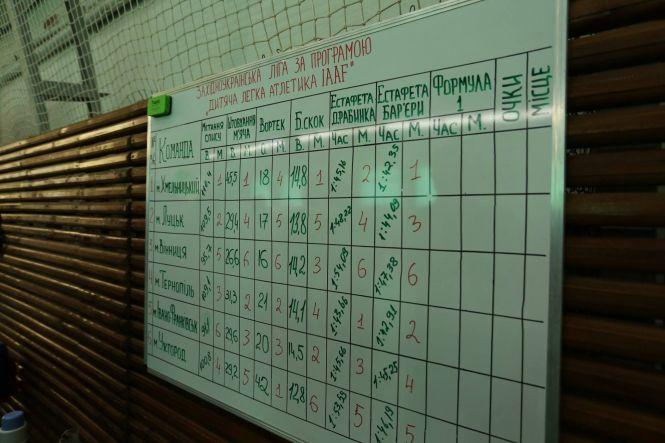 ЗАХІДНОУКРАЇНСЬКА ЛІГА ЗА ПРОГРАМОЮ
"ДИТЯЧА ЛЕГКА АТЛЕТИКА IAAF"
КОМАНДА МЕТАННЯ СПИСУ ШТОВХАННЯ М'ЯЧА ВОРТЕК Б.СКОК ЕСТАФЕТА ДРАБИНКА ЕСТАФЕТА БАР'ЄРИ ФОРМУЛА 1 ОЧКИ МІСЦЕ
В. М. В. М. С М. В. М. ЧАС М. ЧАС М. ЧАС М.
1 м.ХМЕЛЬНИЦЬКИЙ 1 45,5 1 18 4 14,8 1 1:45,16 2 1:42,35 1
2 м.ЛУЦЬК 2 29,4 4 17 5 13,8 5 1:48,22 4 1:44,69 3
3 м.ВІННИЦЯ 5 26,6 6 16 6 14,2 3 1:54,69 6 1:47,38 6
4 м.ТЕРНОПІЛЬ 3 31,3 2 21 2 14,1 4 1 1:42,91 2
5 м.ІВАНО-ФРАНКІВСЬК 6 29,6 3 20 3 14,5 2 1:45,46 3 1:45,25 4
6 м.УЖГОРОД 4 29,2 5 42 1 12,8 6 1:53,53 5 1:46,19 5